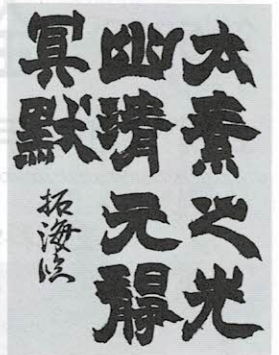 太素之光
幽清元靜
冥默
拓海臨